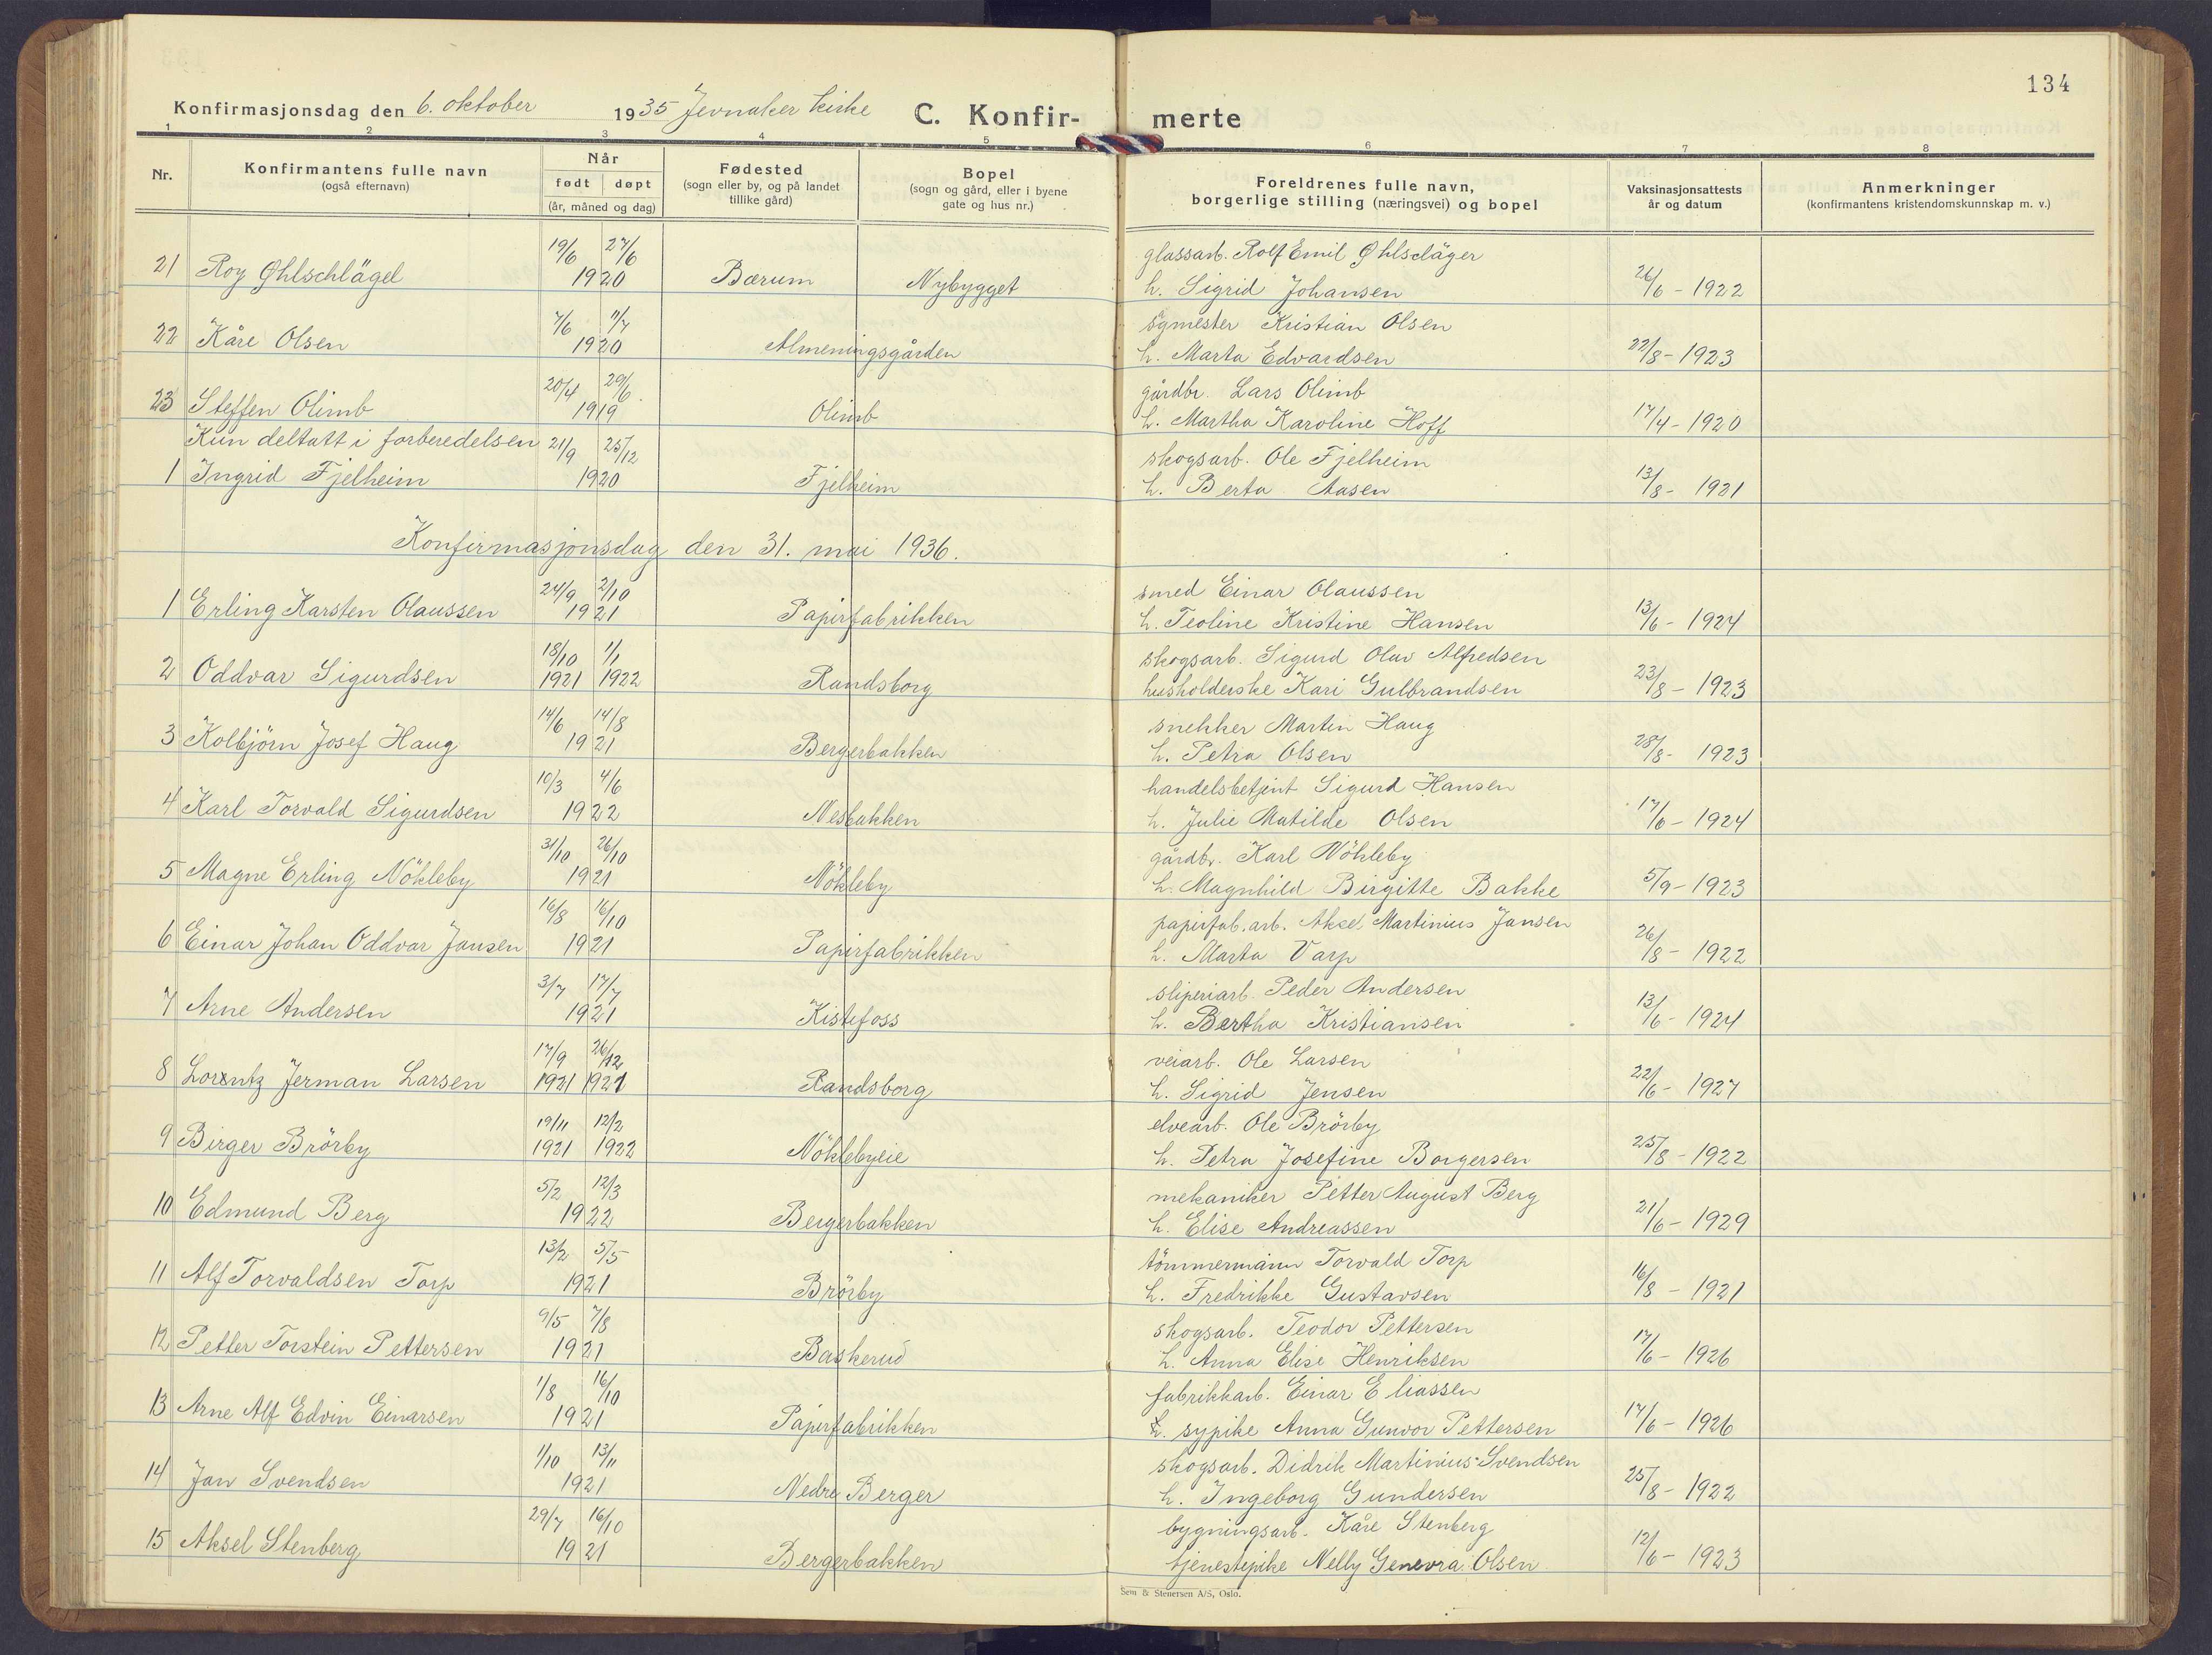 134
Konfirmasjonsdag den 6. oktober 1935 Jevnaker kirke C. Konfir- merte
1 2 3 4 5 6 7 8
Nr.
Konfirmantens fulle navn
(også efternavn)
Når
født døpt
(år, måned og dag)
Fødested
(sogn eller by, og på landet
tillike gård)
Bopel
(sogn og gård, eller i byene
gate og hus nr.)
Foreldrenes fulle navn,
borgerlige stilling (næringsvei) og bopel
Vaksinasjonsattests
år og datum
Anmerkninger
(konfirmantens kristendomskunnskap m. v.)
19/6 27/6 glassarb. Rolf Emil Øhlscläger
21 Roy Øhlschlägel 1920 Bærum Nybygget h. Sigrid Johansen 26/6 - 1922
7/6 11/7 sgmester Kristian Olsen
22 Kåre Olsen 1920 Almeningsgården h. Marta Edvardsen 22/8 - 1923
20/4 29/6 gårdbr. Lars Olimb
23 Steffen Olimb 1919 Olimb h. Martha Karoline Hoff 17/4 - 1920
Kun deltatt i forberedelsen 21/9 25/12 skogsarb. Ole Fjelheim
1 Ingrid Fjelheim 1920 Fjelheim h. Berta Aasen 13/8 - 1921
Konfirmasjonsdag den 31. mai 1936.
24/9 2/10 smed Einar Olaussen
1 Erling Karsten Olaussen 1921 Papirfabrikken h. Teoline Kristine Hansen 13/6 - 1924
18/10 1/1 skogsarb. Sigurd Olav Alfredsen
2 Oddvar Sigurdsen 1921 1922 Randsborg husholderske Kari Gulbrandsen 23/8 - 1923
14/6 14/8 snekker Martin Haug
3 Kolbjörn Josef Haug 1921 Bergerbakken h. Petra Olsen 28/8 - 1923
10/3 4/6 handelsbetjent Sigurd Hansen
4 Karl Torvald Sigurdsen 1922 Nesbakken h. Julie Matilde Olsen 17/6 - 1924
31/10 26/10 gårdbr. Karl Nökleby
5 Magne Erling Nökleby 1921 Nökleby h. Magnhild Birgitte Bakke 5/9 - 1923
16/8 16/10 papirfab.arb. Aksel Martinius Jansen
6 Einar Johan Oddvar Jansen 1921 Papirfabrikken h. Marta Varp 26/8 - 1922
3/7 17/7 sliperiarb. Peder Andersen
7 Arne Andersen 1921 Kistefoss h. Bertha Kristiansen 13/6 - 1924
17/9 26/12 veiarb. Ole Larsen
8 Lorentz Jerman Larsen 1921 1921 Randsborg h. Sigrid Jensen 22/6 - 1927
19/11 12/2 elvearb. Ole Brörby
9 Birger Brörby 1921 1922 Nöklebyeie h. Petra Josefine Borgersen 25/8 - 1922
5/2 12/3 mekaniker Petter August Berg
10 Edmund Berg 1922 Bergerbakken h. Elise Andreassen 21/6 - 1929
13/2 5/5 tömmermann Torvald Torp
11 Alf Torvaldsen Torp 1921 Brörby h. Fredrikke Gustavsen 16/8 - 1921
9/5 7/8 skogsarb. Teodor Pettersen
12 Petter Torstein Pettersen 1921 Baskerud h. Anna Elise Henriksen 17/6 - 1926
1/8 16/10 fabrikkarb. Einar Eliassen
13 Arne Alf Edvin Einarsen 1921 Papirfabrikken h. sypike Anna Gunvor Pettersen 17/6 - 1926
1/10 13/11 skogsarb. Didrik Martinius Svendsen
14 Jan Svendsen 1921 Nedre Berger h. Ingeborg Gundersen 25/8 - 1922
29/7 16/10 bygningsarb. Kåre Stenberg
15 Aksel Stenberg 1921 Bergerbakken tjenestepike Nelly Genevra Olsen 12/6 - 1923
Sem & Stenersen A/S, Oslo.